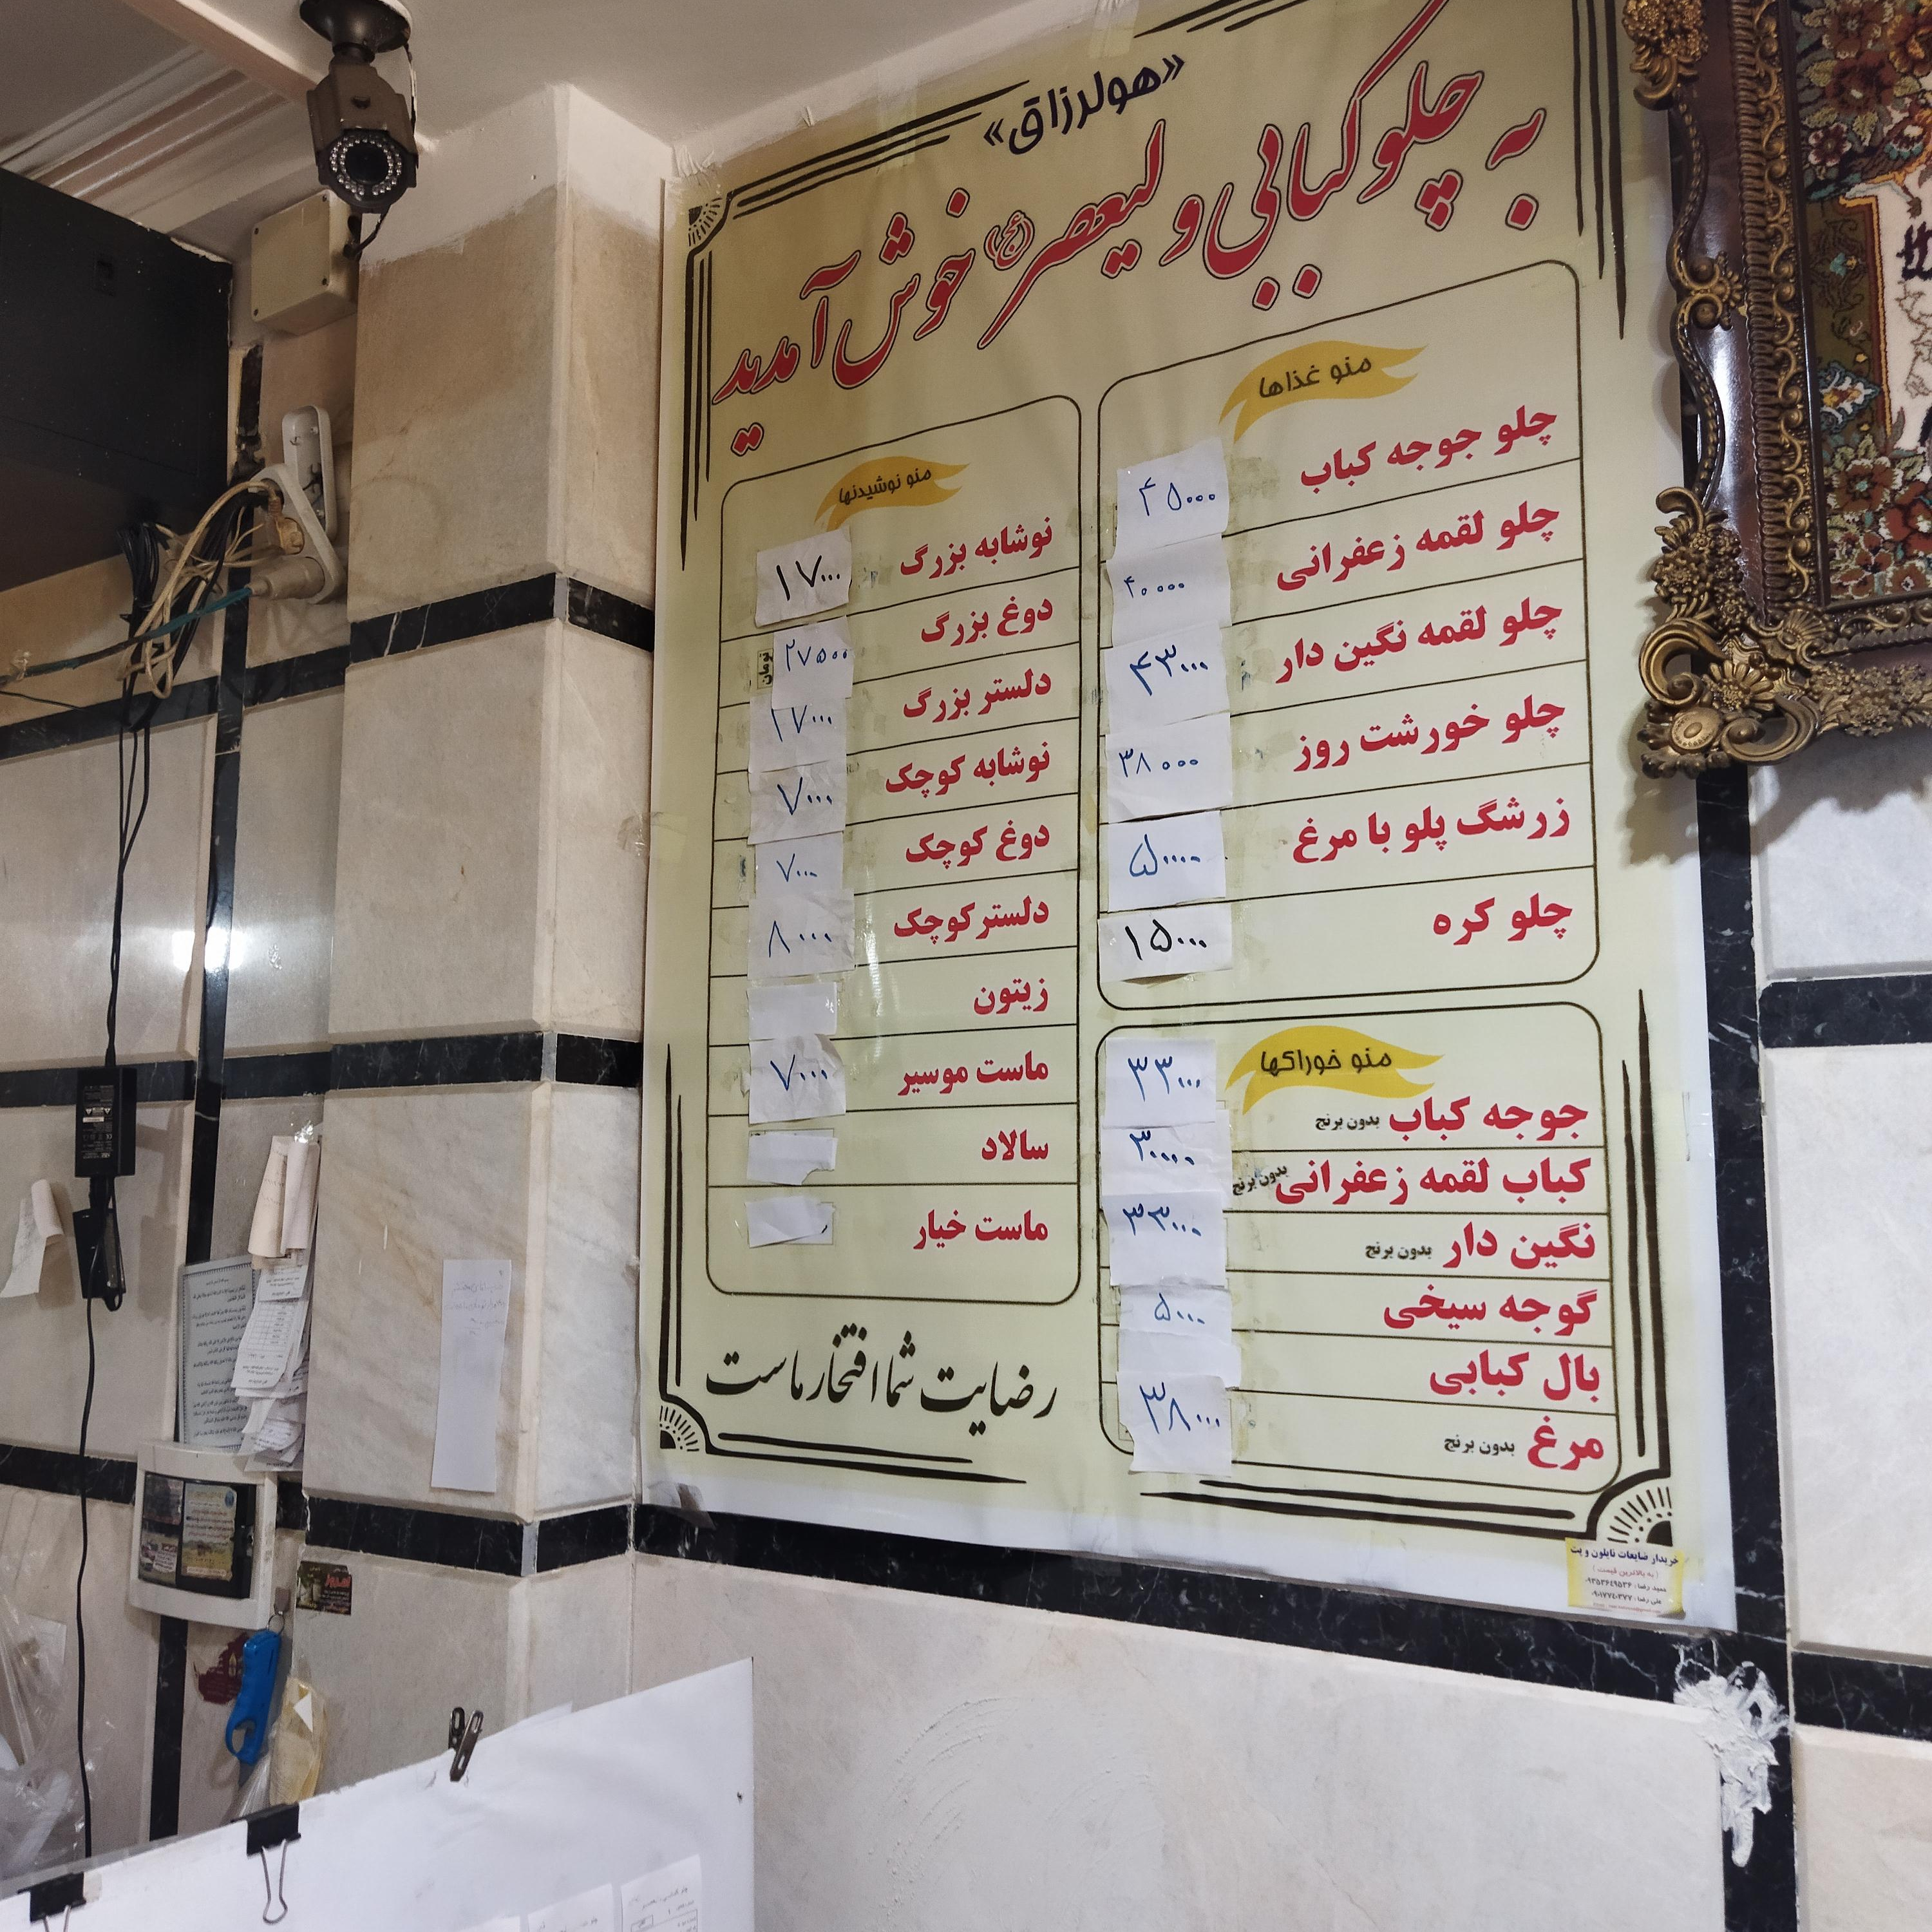 «هوالرزاق»
به چلوکبابی ولیعصر (عج) خوش آمدید
منو غذاها
چلو جوجه کباب ۴۵۰۰۰
چلو لقمه زعفرانی ۴۰۰۰۰
چلو لقمه نگین دار ۴۳۰۰۰
چلو خورشت روز ۳۸۰۰۰
زرشگ پلو با مرغ ۵۰۰۰۰
چلو کره ۱۵۰۰۰
منو خوراکها
جوجه کباب بدون برنج ۳۳۰۰۰
کباب لقمه زعفرانی بدون برنج ۳۰۰۰۰
نگین دار بدون برنج ۳۳۰۰۰
گوجه سیخی ۵۰۰۰
بال کبابی
مرغ بدون برنج ۳۸۰۰۰
منو نوشیدنها
نوشابه بزرگ ۱۷۰۰۰
دوغ بزرگ ۲۷۵۰۰ تومان
دلستر بزرگ ۱۷۰۰۰
نوشابه کوچک ۷۰۰۰
دوغ کوچک ۷۰۰۰
دلستر کوچک ۸۰۰۰
زیتون
ماست موسیر ۷۰۰۰
سالاد
ماست خیار
رضایت شما افتخار ماست
خریدار ضایعات نایلون و پت
(به بالاترین قیمت)
حمید رضا: ۰۹۳۵۳۶۴۹۵۳۶
علی رضا: ۰۹۰۱۷۷۴۰۳۷۷